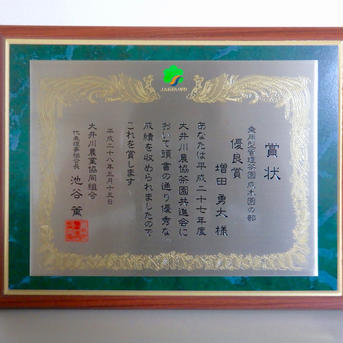 賞状
乗用型管理茶園成木園の部
優良賞
増田 勇太 様
あなたは平成二十七年度
大井川農協茶園共進会に
おいて頭書の通り優秀な
成績を収められましたので
これを賞します
平成二十八年五月十五日
大井川農業協同組合
代表理事組合長 池谷 薫